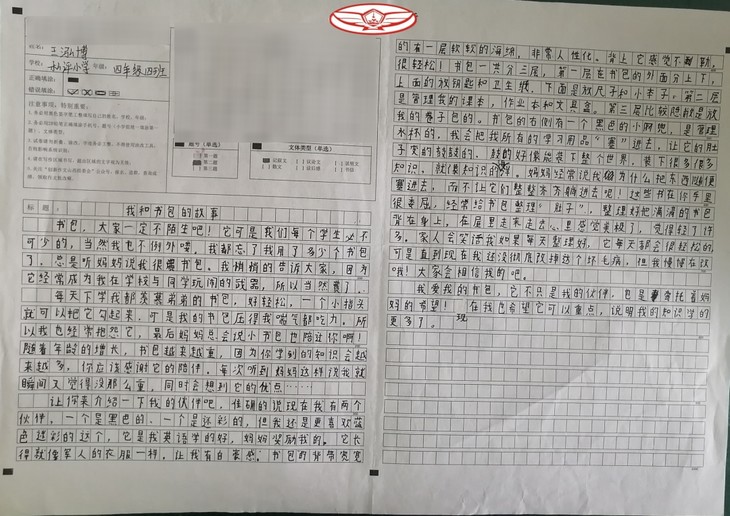 姓名: 王泓博
学校: 松坪小学 年级: 四年级19班
正确填涂:
错误填涂:
注意事项, 特别重要:
题号 (单选)
第一题
第二题
文体类型 (单选)
记叙文 议论文 说明文
散文 读后感 书信
标 题: 我和书包的故事
书包, 大家一定不陌生吧! 它可是我们每个学生必不
可少的, 当然我也不例外喽。我都忘了我用了多少个书包
了。总是听妈妈说我很费书包。我悄悄的告诉大家, 因为
它经常成为我在学校与同学玩闹的武器, 所以当然费了。
每次下学我都羡慕弟弟的书包, 好轻松, 一个小指头
就可以把它勾起来。可是我的书包压得我喘气都吃力。所
以我也经常抱怨它, 最后妈妈总会说小书包也陪让你啊!
随着年龄的增长, 书包越来越重, 因为你学到的知识会越
来越多, 你应该感谢它的陪伴。每次听到妈妈这样说我就
瞬间又觉得没那么重, 同时会想到它的优点……
让你来介绍一下我的伙伴吧, 准确的说现在我有两个
伙伴。一个是黑色的、一个是迷彩的, 但我还是更喜欢蓝
色迷彩的这个, 它是我英语学的好, 妈妈奖励我的。它长
得就像军人的衣服一样, 让我有自豪感。书包的背带宽宽
的有一层软软的海绵, 非常人性化。背上它感觉不勒,
很轻松! 书包一共分三层, 第一层在书包的外面分上下,
上面的放钥匙和卫生纸, 下面是放尺子和小本子; 第二层
是管理我的课本, 作业本和文具盒。第三层比较隐蔽是放
我的卷子包的。书包的右侧有一个黑色的小网兜, 是管理
水杯的。我会把我所有的学习用品“塞”进去, 让它的肚
子变的鼓鼓的, 鼓的好像能装下整个世界, 装下很多很多
知识, 就像知识的海, 妈妈经常说我为什么把东西随便
塞进去, 而不让它们整整齐齐躺进去呢! 这些书在你手里
很委屈, 经常给书包整理“肚子”, 整理好把满满的书包
背在身上, 在屋里走来走去心里感觉美极了, 觉得轻了许
多。家人会笑话我如果每天整理好, 它每天都会很轻松的
可是直到现在我还没彻底改掉这个坏毛病, 但我慢慢在改
哦! 大家会相信我的吧。
我爱我的书包, 它不只是我的伙伴, 也是寄托着妈
妈的希望! 在我也希望它可以重点, 说明我的知识学的
更多了。